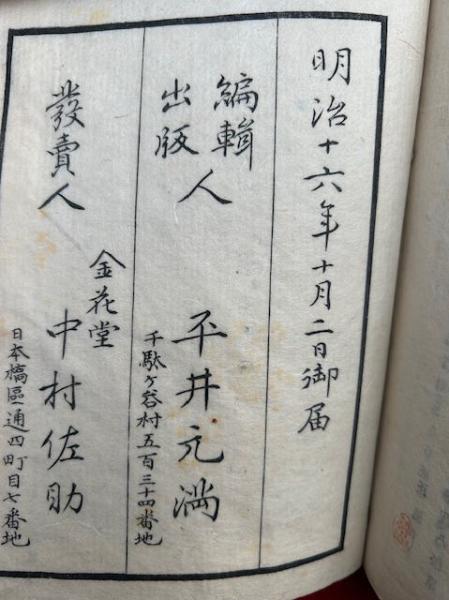 明治十六年十月二日御届
編輯
出版
人
平井元満
千駄ヶ谷村五百三十四番地
發賣人
金花堂
中村佐助
日本橋區通四町目七番地